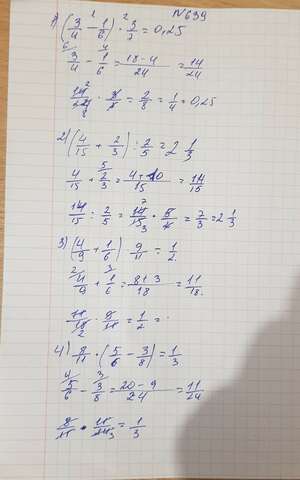 №639
1) (3/4 - 1/6) · 3/7 = 0,25
3/4 - 1/6 = 18-4/24 = 14/24
14/24 · 3/7 = 2/8 = 1/4 = 0,25
2) (4/15 + 2/3) : 2/5 = 2 1/3
4/15 + 2/3 = 4+10/15 = 14/15
14/15 : 2/5 = 14/15 · 5/2 = 7/3 = 2 1/3
3) (4/9 + 1/6) · 9/11 = 1/2
4/9 + 1/6 = 8+3/18 = 11/18.
11/18 · 9/11 = 1/2 =
4) 8/11 · (5/6 - 3/8) = 1/3
5/6 - 3/8 = 20-9/24 = 11/24
8/11 · 11/24 = 1/3